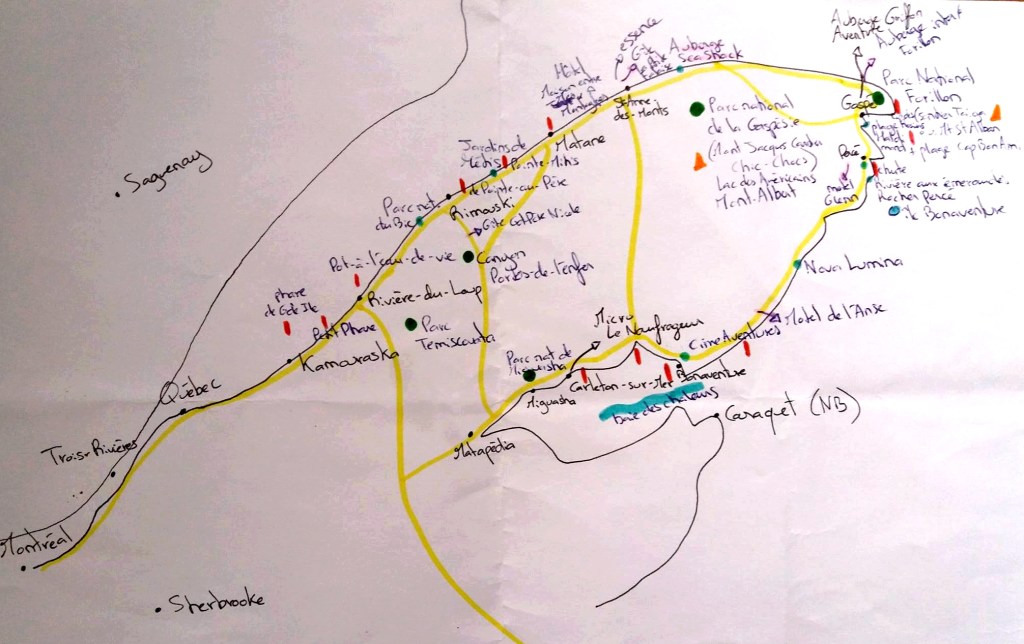 Saguenay
essence
Gîte
Auberge
Sea Shack
Auberge Griffon
Aventure
Auberge
Forillon
Parc National
Forillon
Gaspé
Mt St Alban
plage Cap Bon Ami
Hôtel
Ste-Anne
des-Monts
Matane
Parc national
de la Gaspésie
(Mont Jacques Cartier
Chic-Chocs)
Lac des Américains
Mont-Albert
Jardins de
Métis
Pointe-Mitis
Percé
chute
Rivière aux émeraudes
Rocher Percé
île Bonaventure
motel
Parc nat
du Bic
de Pointe-au-Père
Rimouski
Gîte
Canyon
Portes-de-l'Enfer
Pot-à-l'eau-de-vie
Nova Lumina
phare
Rivière-du-Loup
Petit Phare
Parc
Témiscouata
Kamouraska
Micro
Le Naufrageur
Motel de l'Anse
Cime Aventures
Parc nat de
Miguasha
Carleton-sur-Mer
Bonaventure
Miguasha
baie des chaleurs
Québec
Caraquet (NB)
Matapédia
Trois-Rivières
Montréal
Sherbrooke